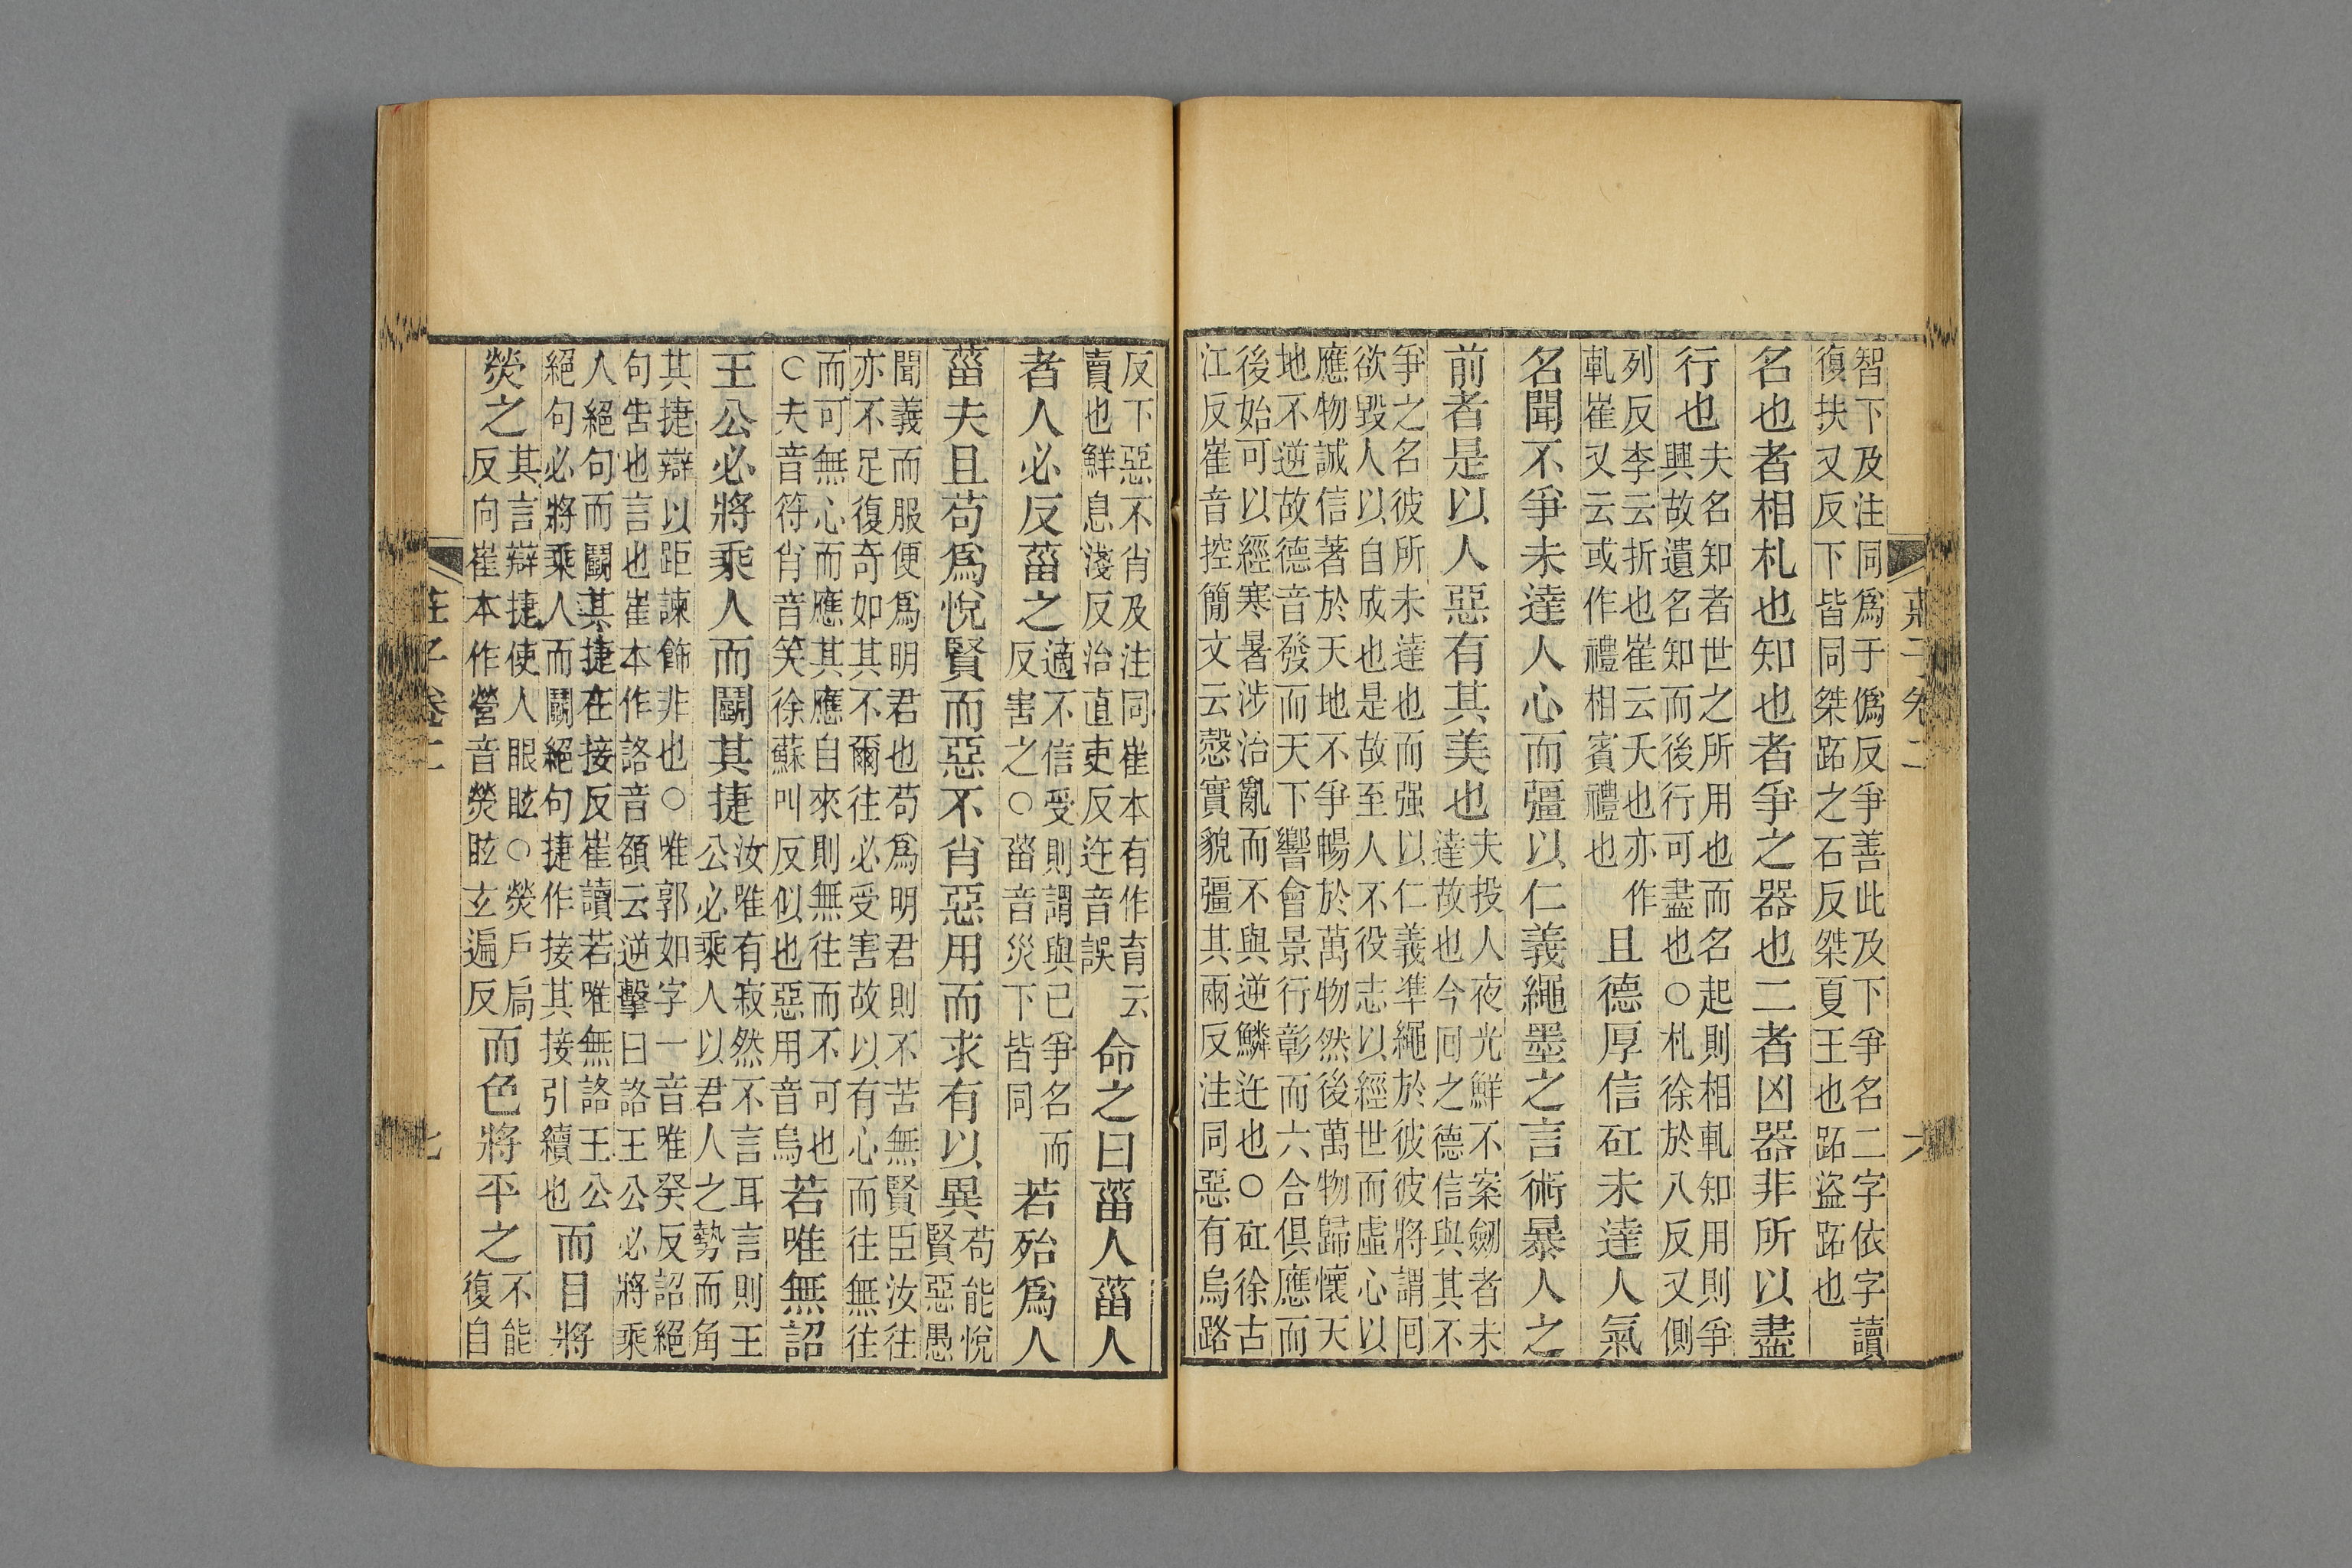 智下及注同爲于僞反爭善此及下爭名二字依字讀
復扶又反下皆同桀跖之石反桀夏王也跖盜跖也
名也者相札也知也者爭之器也二者凶器非所以盡
行也夫名知者世之所用也而名起則相軋知用則爭
興故遺名知而後行可盡也○札徐於八反又側
列反李云折也崔云夭也亦作
軋崔又云或作禮相賓禮也
且德厚信矼未達人氣
名聞不爭未達人心而彊以仁義繩墨之言術暴人之
前者是以人惡有其美也夫投人夜光鮮不案劒者未
達故也今回之德信與其不
爭之名彼所未達也而强以仁義準繩於彼彼將謂回
欲毀人以自成也是故至人不役志以經世而虛心以
應物誠信著於天地不爭暢於萬物然後萬物歸懷天
地不逆故德音發而天下響會景行彰而六合俱應而
後始可以經寒暑涉治亂而不與逆鱗迕也○矼徐古
江反崔音控簡文云愨實貌彊其兩反注同惡有烏路
莊子卷二
六
反下惡不肖及注同崔本有作育云
賣也鮮息淺反治直吏反迕音誤
命之曰菑人菑人
者人必反菑之適不信受則謂與己爭名而
反害之○菑音災下皆同
若殆爲人
菑夫且苟爲悅賢而惡不肖惡用而求有以異苟能悅
賢惡愚
聞義而服便爲明君也苟爲明君則不苦無賢臣汝往
亦不足復奇如其不爾往必受害故以有心而往無往
而可無心而應其應自來則無往而不可也
○夫音符肖音笑徐蘇叫反似也惡用音烏
若唯無詔
王公必將乘人而鬭其捷汝唯有寂然不言耳言則王
公必乘人以君人之勢而角
其捷辯以距諫飾非也○唯郭如字一音唯癸反詔絕
句告也言也崔本作詻音頟云逆擊曰詻王公必將乘
人絕句而鬭其捷在接反崔讀若唯無詻王公
絕句必將乘人而鬭絕句捷作接其接引續也
而目將
熒之其言辯捷使人眼眩○熒戶扃
反向崔本作營音熒眩玄遍反
而色將平之不能
復自
莊子卷二
七